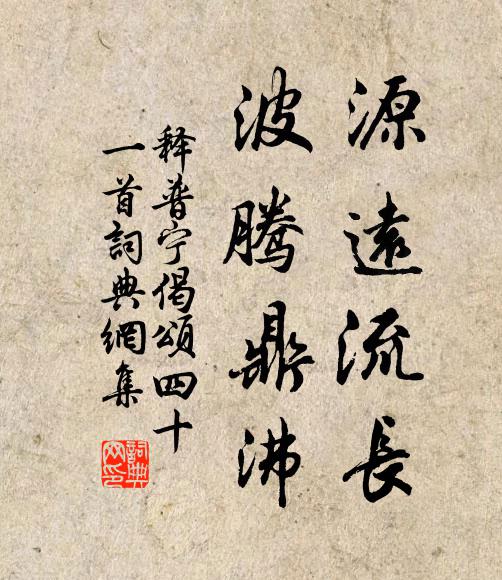 源遠流長
波騰鼎沸
释普宁偈頌四十
一首詞典網集
詞典
网印